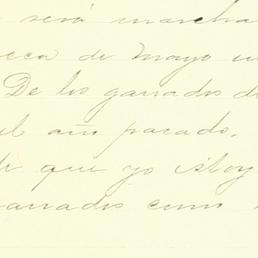 será marcha
eca de Mayo u
De los ganados d
el año pasado.
que yo istoy
ganados como